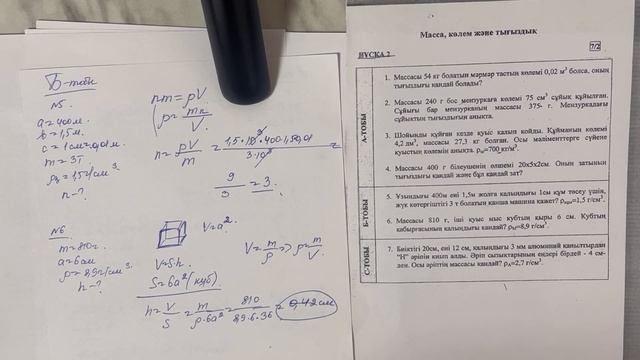 Б-тобы
N5.
a=400м.
b=1,5м.
c=1см=0,01м
m=3т.
n-?
nm=ρV
ρ=mn/V.
n=ρV/m=
9/3=3.
N6
m=810г.
a=6см
ρ=8,9г/см³
h-?
V=a².
V=S·h.
S=6a²(куб)
V=m/ρ=>ρ=m/V.
h=V/S=m/ρ·6a²=810/8,9·6·36=0,42см
Масса, көлем және тығыздық
НҰСҚА 2
7/2
А-ТОБЫ
1. Массасы 54 кг болатын мәрмәр тастың көлемі 0,02 м³ болса, оның
тығыздығы қандай болады?
2. Массасы 240 г бос мензуркаға көлемі 75 см³ сұйық құйылған.
Сұйығы бар мензурканың массасы 375- г. Мензуркадағы
сұйықтың тығыздығын анықта.
3. Шойынды құйған кезде қуыс қалып қойды. Құйманың көлемі
4,2 дм³, массасы 27,3 кг болған. Осы мәліметтерге сүйене
қуыстың көлемін анықта. ρш=700 кг/м³.
4. Массасы 400 г білеушенің өлшемі 20х5х2см. Оның затының
тығыздығы қандай және бұл қандай зат?
Б-ТОБЫ
5. Ұзындығы 400м ені 1,5м жолға қалыңдығы 1см құм төсеу үшін,
жүк көтергіштігі 3 т болатын қанша машина қажет? =1,5 г/см³.
6. Массасы 810 г, іші қуыс мыс кубтың қыры 6 см. Кубтың
қабырғасының қалыңдығы қандай? =8,9 г/см³
С-ТОБЫ
7. Биіктігі 20см, ені 12 см, қалыңдығы 3 мм алюминий қаңылтырдан
"Н" әріпін қиып алды. Әріп сызықтарының ендері бірдей - 4 см-
ден. Осы әріптің массасы қандай? =2,7 г/см³.